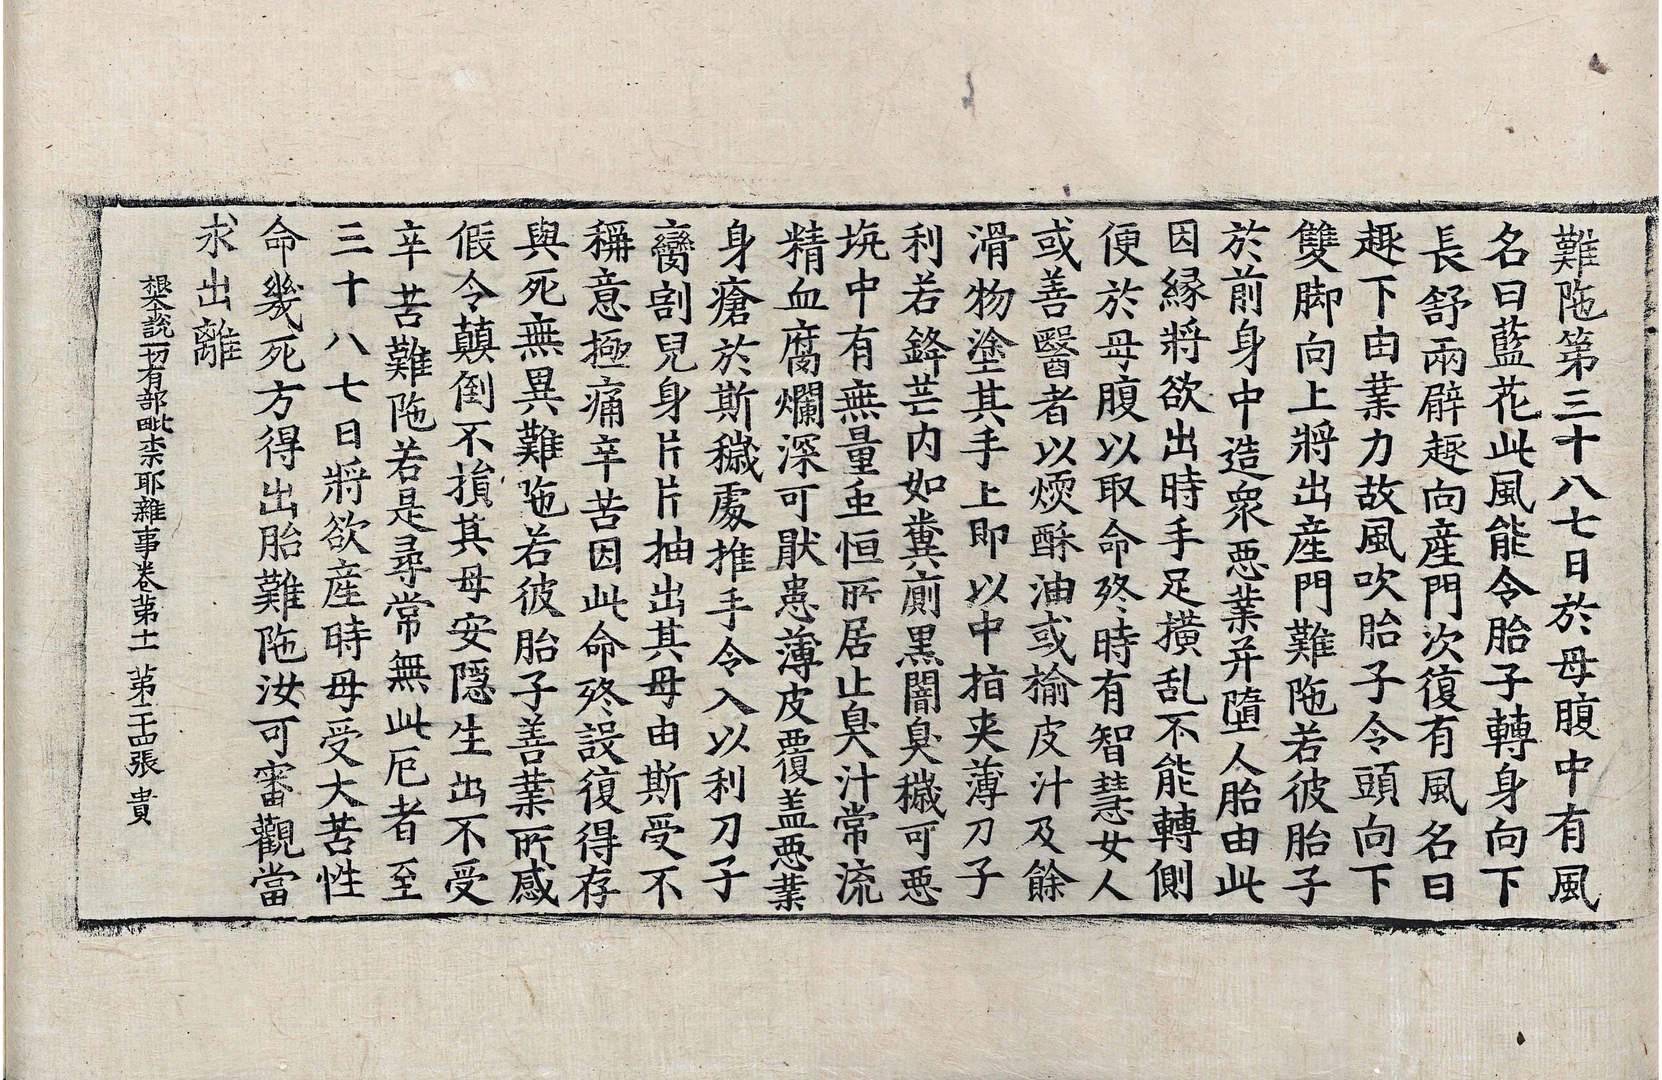 難陁第三十八七日於母腹中有風
名曰藍花此風能令胎子轉身向下
長舒兩臂趣向産門次復有風名曰
趣下由業力故風吹胎子令頭向下
雙脚向上將出産門難陁若彼胎子
於前身中造衆惡業并墮人胎由此
因縁將欲出時手足撗乱不能轉側
便於母腹以取命終時有智慧女人
或善醫者以煗酥油或揄皮汁及餘
滑物塗其手上即以中指夾薄刀子
利若鋒芒内如糞廁黑闇臭穢可惡
坑中有無量虫恒所居止臭汁常流
精血腐爛深可猒患薄皮覆盖惡業
身瘡於斯穢處推手令入以利刀子
臠割兒身片片抽出其母由斯受不
稱意極痛辛苦因此命終設復得存
與死無異難陁若彼胎子善業所感
假令顛倒不損其母安隱生出不受
辛苦難陁若是尋常無此厄者至
三十八七日將欲産時母受大苦性
命幾死方得出胎難陁汝可審觀當
求出離
根本説一切有部毗柰耶雜事卷第十一 第二十四張 貴